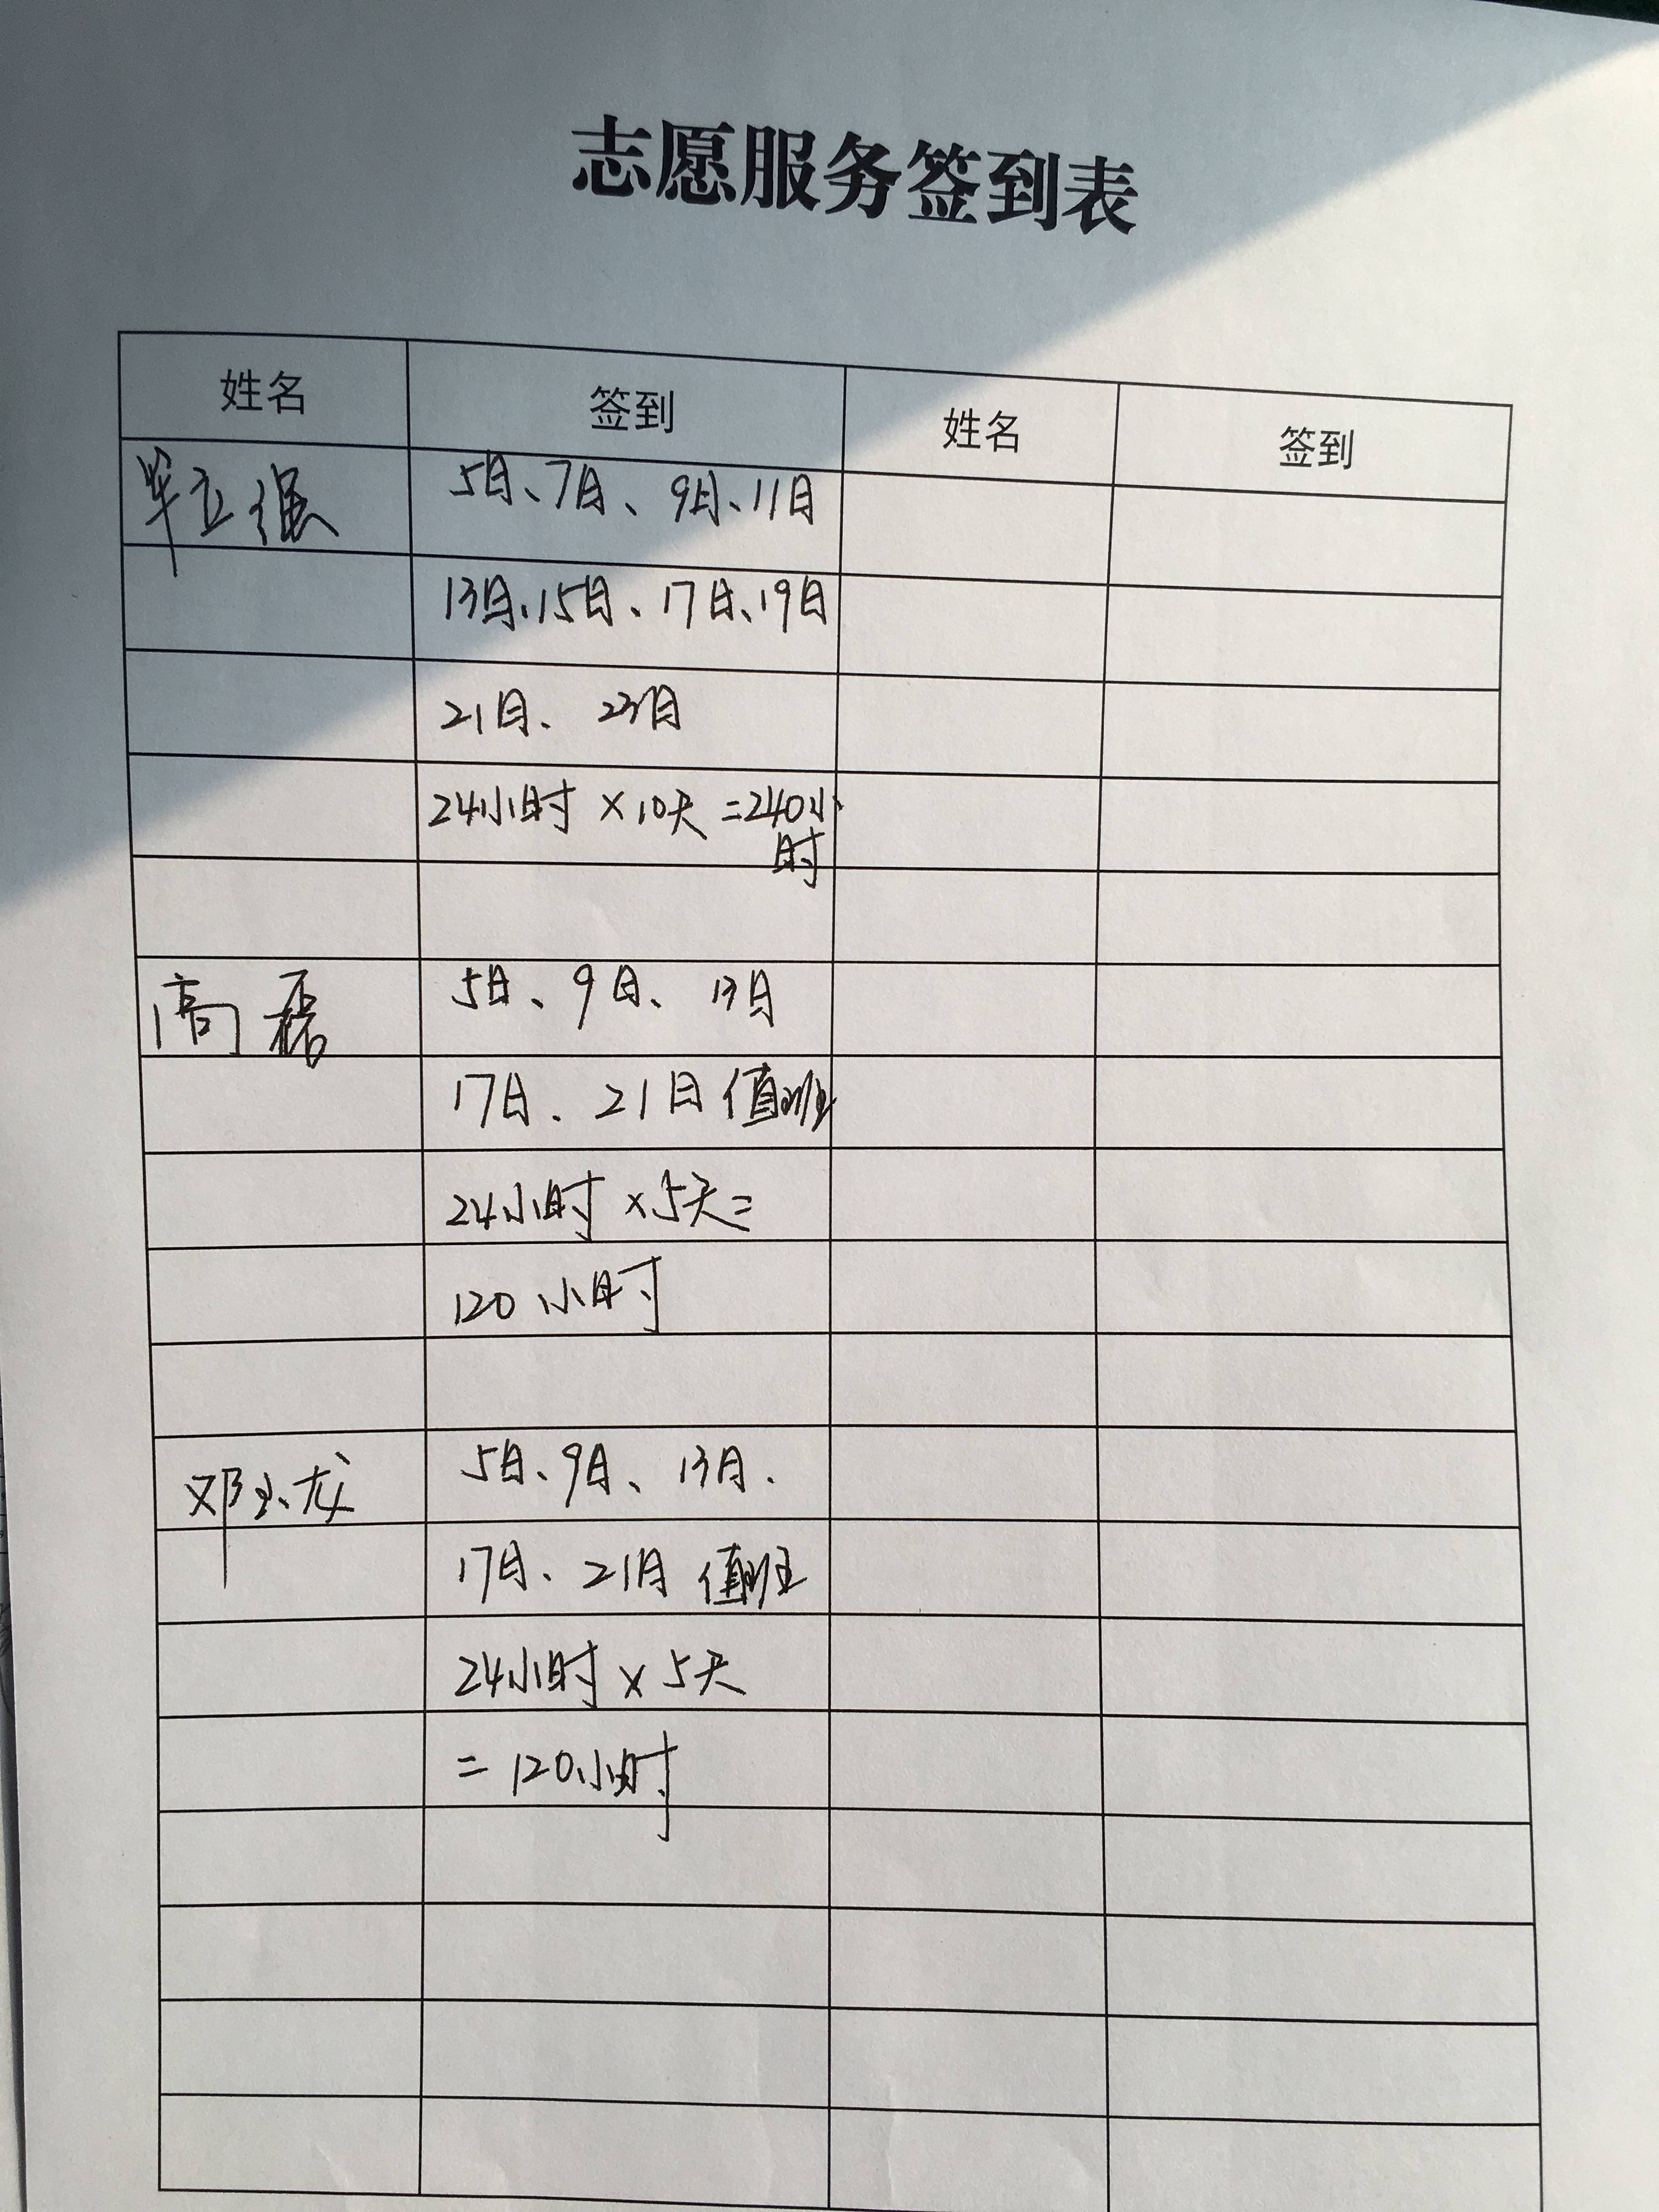 志愿服务签到表
姓名 签到 姓名 签到
毕立强 5日、7日、9日、11日
13日、15日、17日、19日
21日、23日
24小时×10天=240小
时
高磊 5日、9日、13日
17日、21日值班
24小时×5天=
120小时
邓小龙 5日、9日、13日、
17日、21日值班
24小时×5天
=120小时